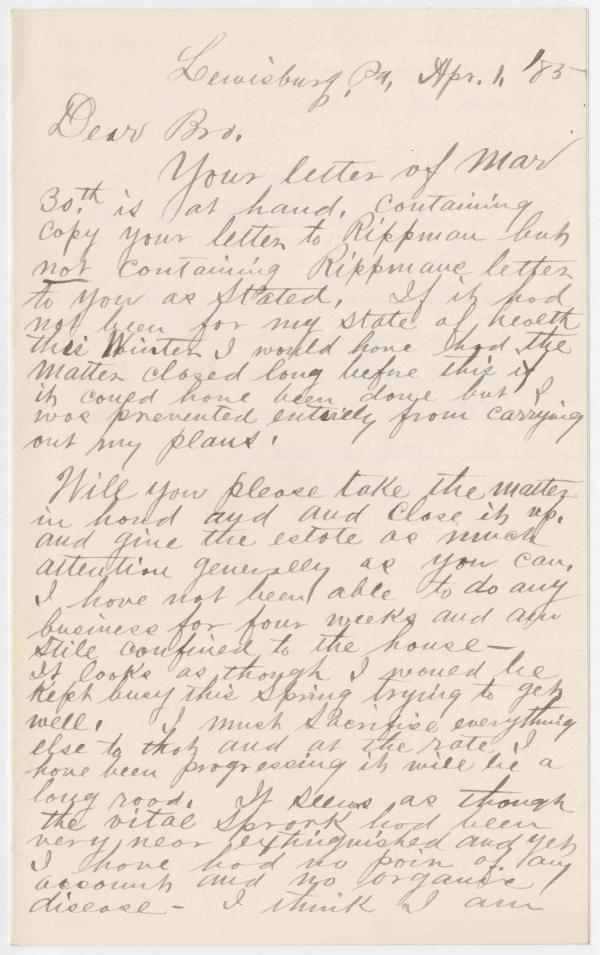 Lewisburg, Pa, Apr. 1, '85
Dear Bro.
Your letter of Mar
30th. is at hand. containing
copy your letter to Rippman but
not containing Rippmans letter
to you as stated. If it had
not been for my state of health
this Winter I would have had the
matter closed long before this if
it could have been done but I
was prevented entirely from carrying
out my plans.
Will you please take the matter
in hand and and close it up.
and give the estate as much
attention generally as you can.
I have not been able to do any
business for four weeks and am
stile confined to the house —
It looks as though I would be
kept busy this spring trying to get
well. I must sacrifise everything
else to that and at the rate I
have been progressing it will be a
long road. It seems as though
the vital spark had been
very near extinguished and yet
I have had no pain of any
account and no organic
disease — I think I am